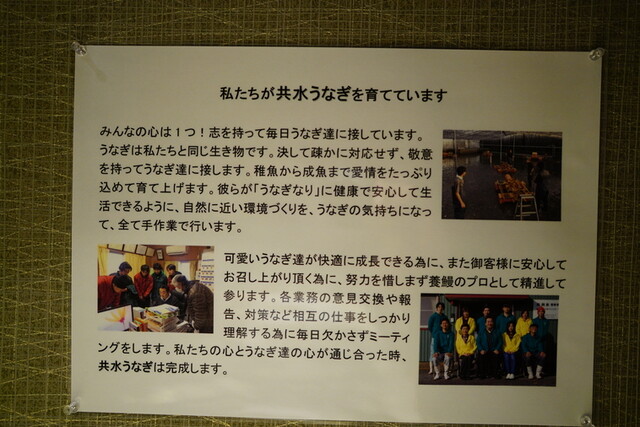 私たちが共水うなぎを育てています
みんなの心は１つ！志を持って毎日うなぎ達に接しています。
うなぎは私たちと同じ生き物です。決して疎かに対応せず、敬意
を持ってうなぎ達に接します。稚魚から成魚まで愛情をたっぷり
込めて育て上げます。彼らが「うなぎなり」に健康で安心して生
活できるように、自然に近い環境づくりを、うなぎの気持ちになっ
て、全て手作業で行います。
可愛いうなぎ達が快適に成長できる為に、また御客様に安心して
お召し上がり頂く為に、努力を惜しまず養鰻のプロとして精進して
参ります。各業務の意見交換や報
告、対策など相互の仕事をしっかり
理解する為に毎日欠かさずミーティ
ングをします。私たちの心とうなぎ達の心が通じ合った時、
共水うなぎは完成します。